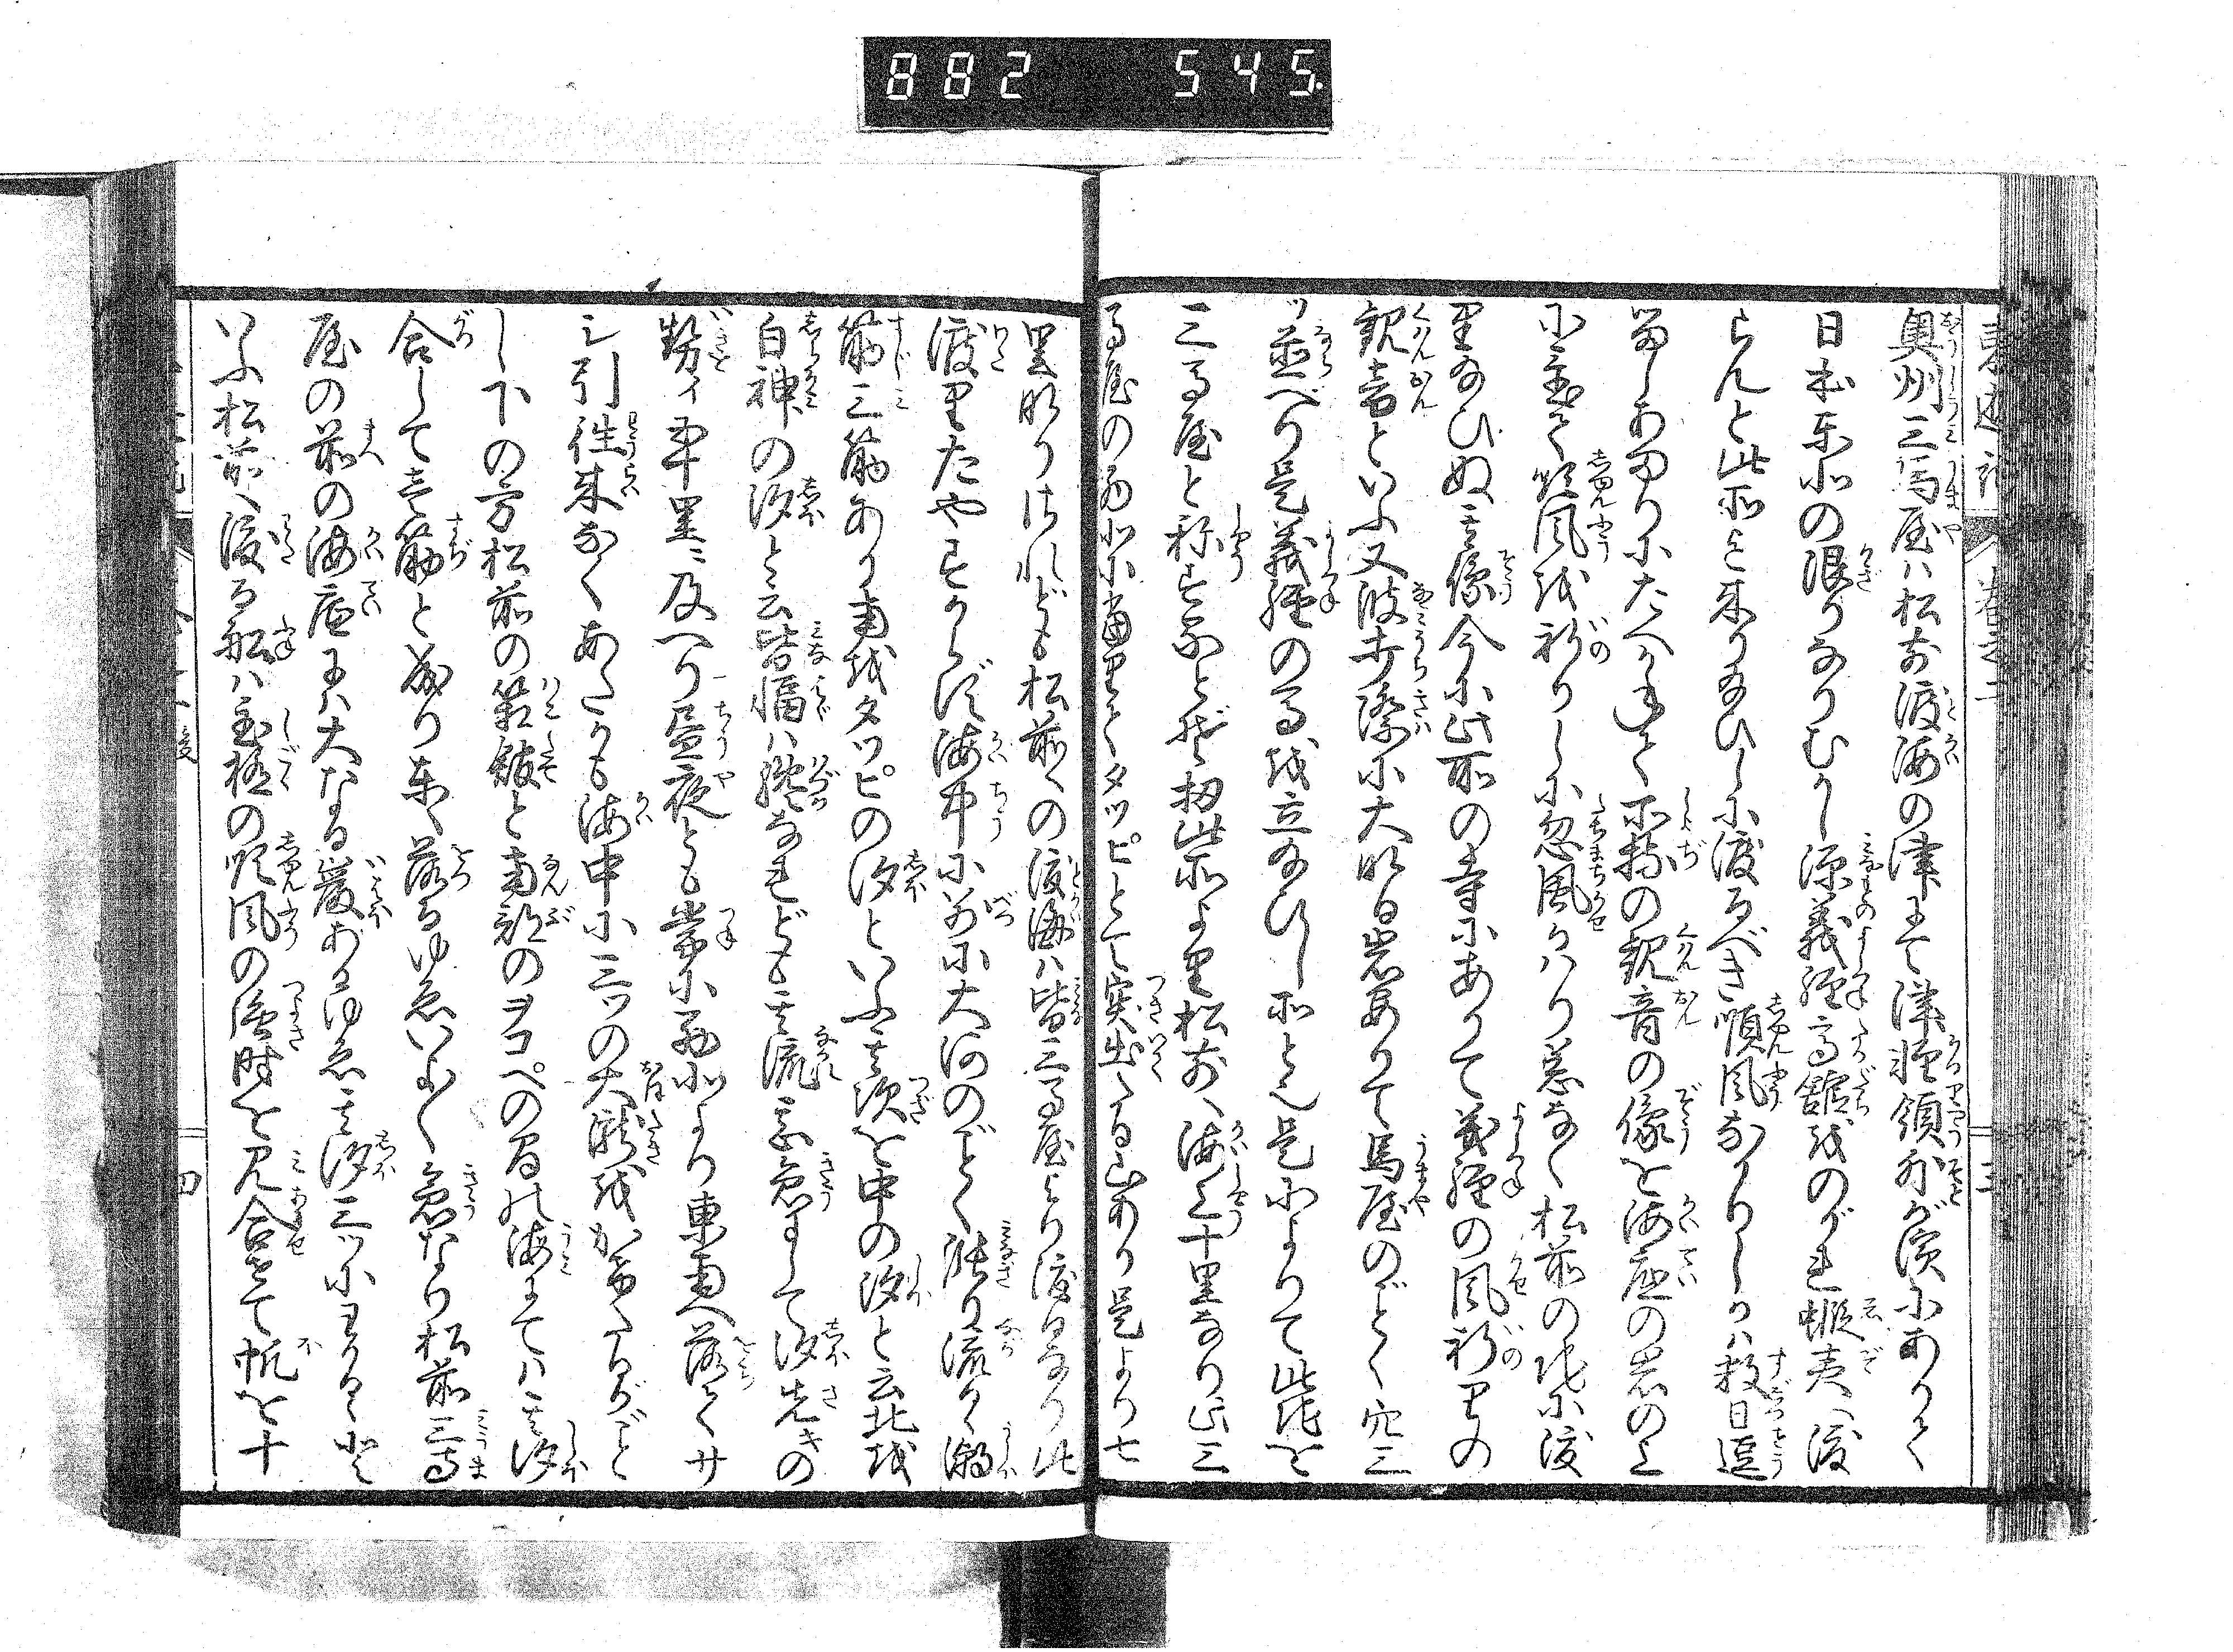 882 545.
奥州三馬屋ハ松前渡海の津にて津軽領外が濱にありて
日本東北の限りなりむかし源義経高舘をのがれ蝦夷へ渡
らんと此所迄来り給ひしに渡るべき順風なかりしかバ数日逗
留しあまりにたへかねて所持の観音の像を海底の岩の上
に置て順風を祈りしに忽風かハり恙なく松前の地に渡
り給ひぬ其像今に此所の寺にありて義経の風祈りの
観音といふ又波打際に大なる岩ありて馬屋のごとく穴三
ツ並べり是義経の馬を立給ひし所となん是によりて此地を
三馬屋と称するなりとぞ扨此所より松前へ海上十里なり此三
馬屋の西北に當りてタツピとて突出たる山あり是より七
里なりされども松前への渡海ハ皆三馬屋より渡るなり此
渡りたやすからず海中に別に大河のごとく漲り流るゝ潮
筋三筋あり南をタツピの汐といふ其次を中の汐と云北を
白神の汐と云皆幅ハ纔なれども其流甚急にして汐先きの
勢イ五十里に及べり昼夜とも常に西北より東南へ落てサ
シ引往来なくあたかも海中に三ツの大瀧をかけたるがごと
し下の方松前の箱舘と南部のヲコペの間の海にてハ其汐
合して壱筋と成り東へ落るゆゑいよ〳〵急なり松前三馬
屋の前の海底にハ大なる巌あるゆゑ其汐三ツにわかるゝと
いふ松前へ渡る船ハ至極の順風の強き時を見合せて帆を十